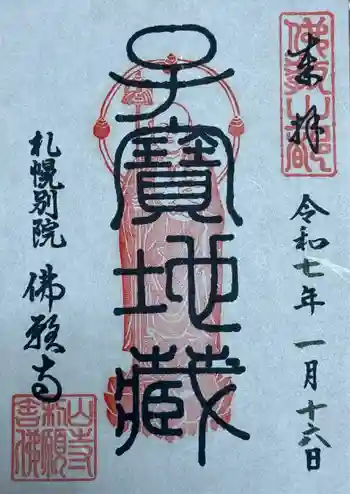 来拝
令和七年 一月十六日
子寶地蔵
札幌別院 佛願寺